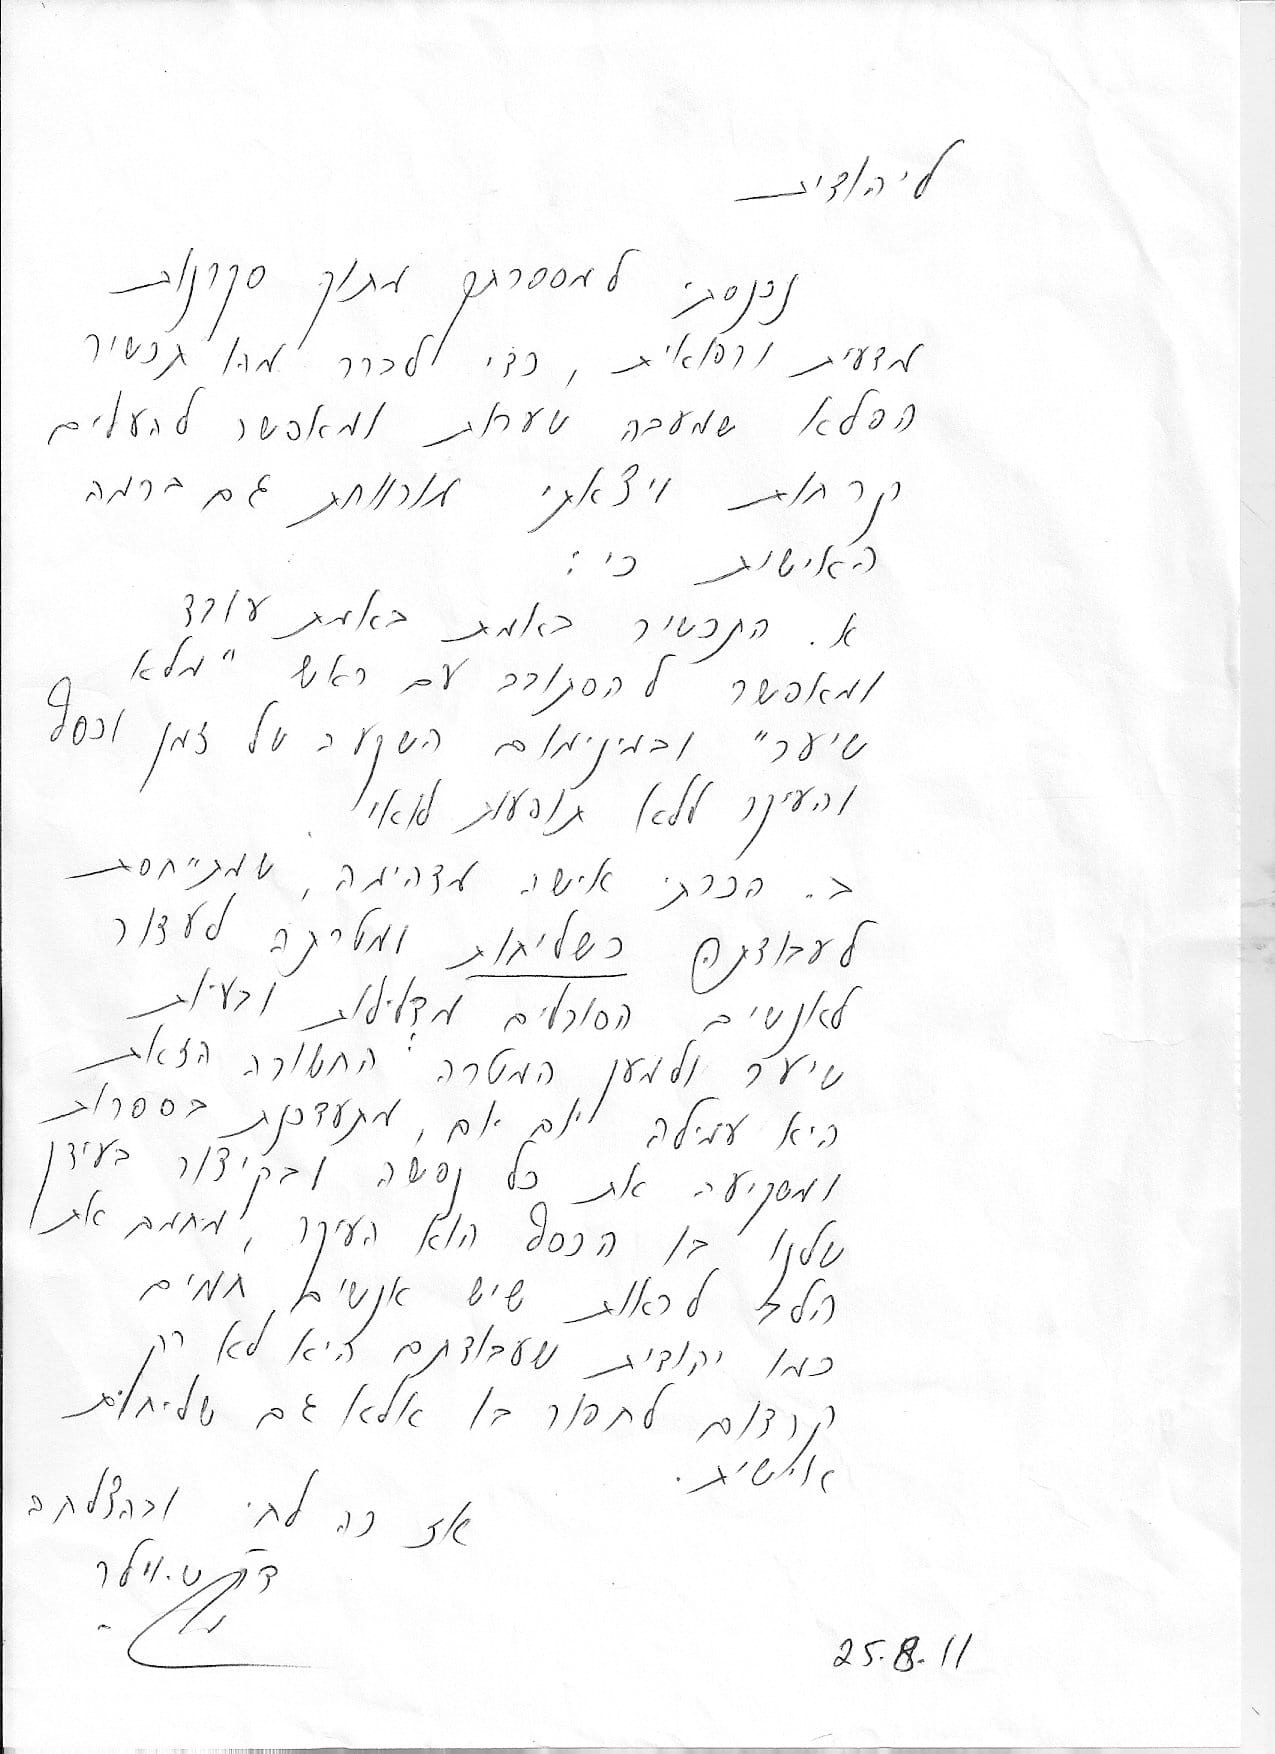 ליהודית
נכנסתי למספרתך מתוך סקרנות
מדעית ורפואית, כדי לברר מהו תכשיר
הפלא שמעבה שערות ומאפשר להעלים
קרחות ויצאתי מורווחת גם ברמה
האישית כי:
א. התכשיר באמת באמת עובד
ומאפשר להסתובב עם ראש "מלא
שיער" ובמינימום השקעה של זמן וכסף
והעיקר ללא תופעות לוואי
ב. הכרתי אישה מדהימה, שמתייחסת
לעבודתה כשליחות ומטרתה לעזור
לאנשים הסובלים מדלילות ובעיות
שיער ולמען המטרה החשובה הזאת
היא עמילה יום יום, מתעדכנת בספרות
ומשקיעה את כל נפשה ובקיצור בעידן
שלנו בו הכסף הוא העיקר, מחמם את
הלב לראות שיש אנשים חמים
כמו יהודית שעבודתם היא לא רק
קרדום לחפור בו אלא גם שליחות
אישית.
אז כה לחי ובהצלחה
ט. וילר
25.8.11